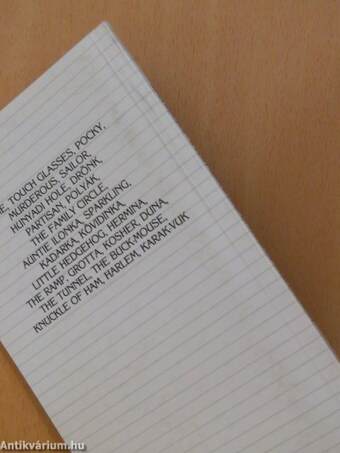 TOUCH GLASSES, POCKY,
MURDEROUS, SAILOR,
HUNYADI HOLE, DRÖNK,
PARTISAN, POLYÁK,
THE FAMILY CIRCLE,
AUNTIE ILONKA, SPARKLING,
KADARKA, KÖVIDINKA,
LITTLE HEDGEHOG, HERMINA,
THE RAMP, GROTTA, KOSHER, DUNA,
THE TUNNEL, THE BUCK-MOUSE,
KNUCKLE OF HAM, HARLEM, KARAK-VUK
Antikvárium.hu